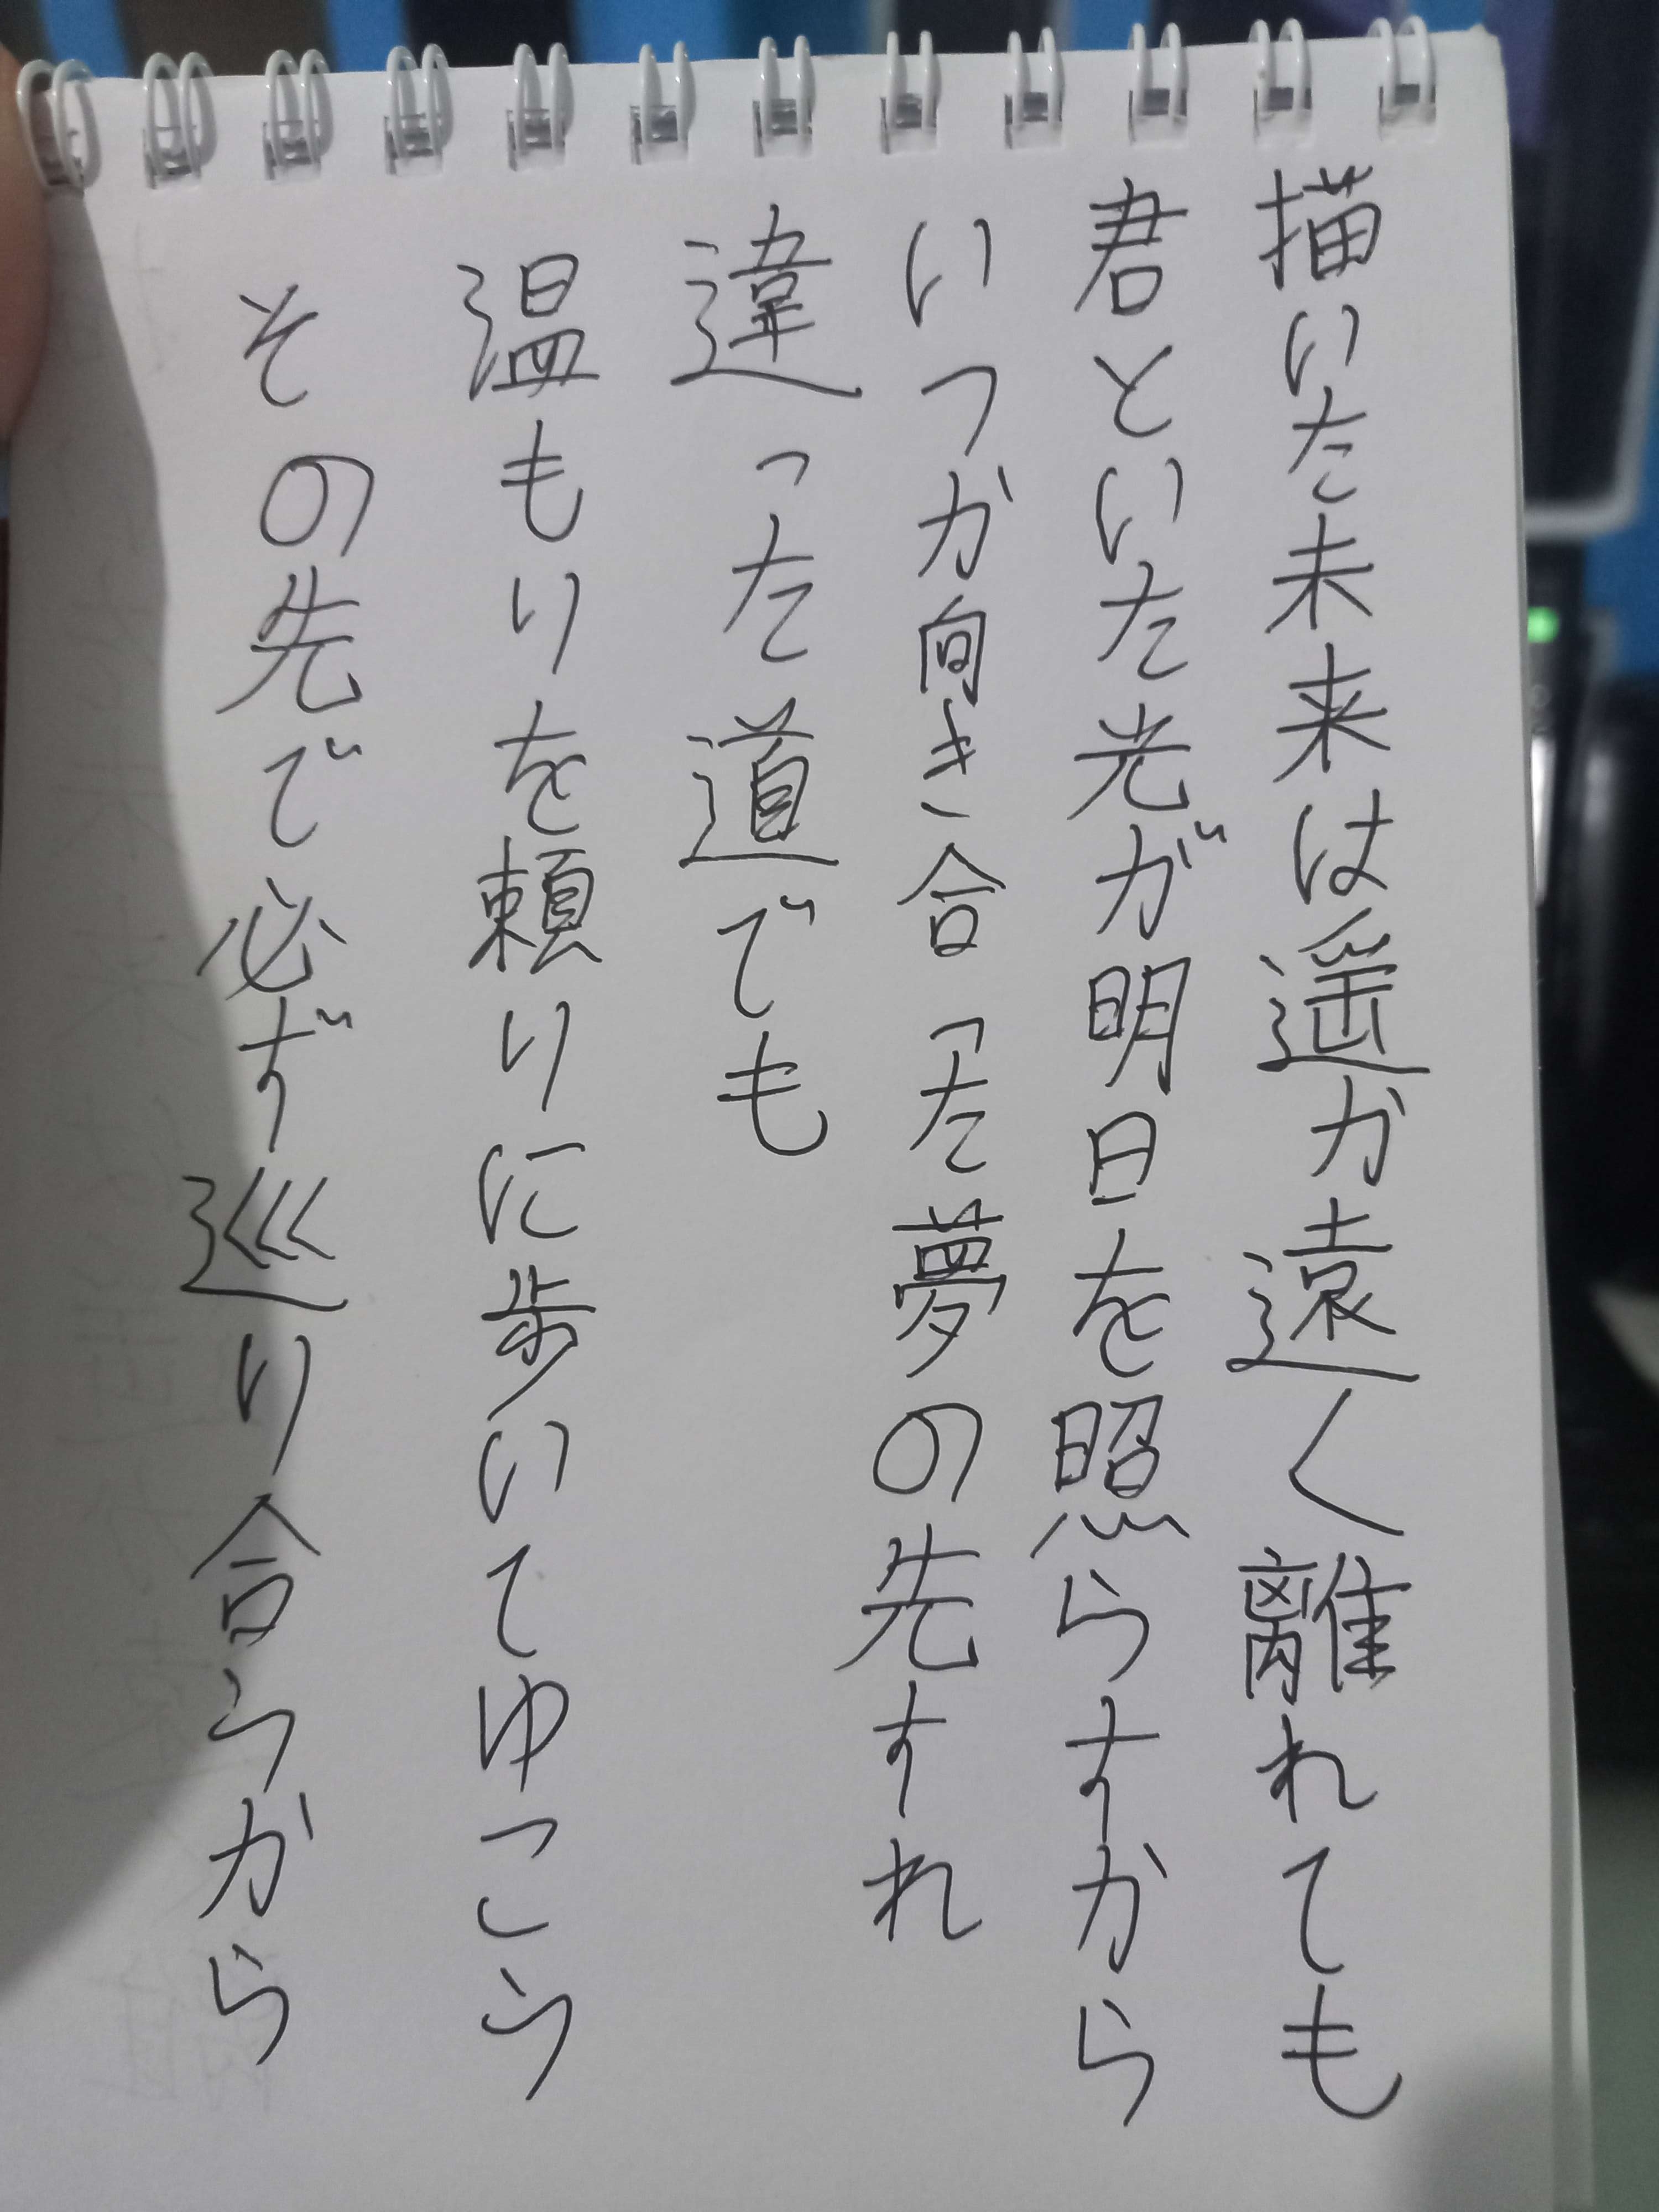 描いた未来は遥か遠く離れても
君といた光が明日を照らすから
いつか向き合った夢の先すれ
違った道でも
温もりを頼りに歩いてゆこう
その先で必ず巡り合うから